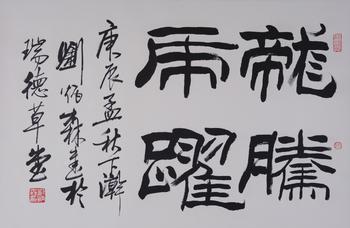 龍騰
虎躍
庚辰孟秋下澣
劉炳森書於
瑞德草堂